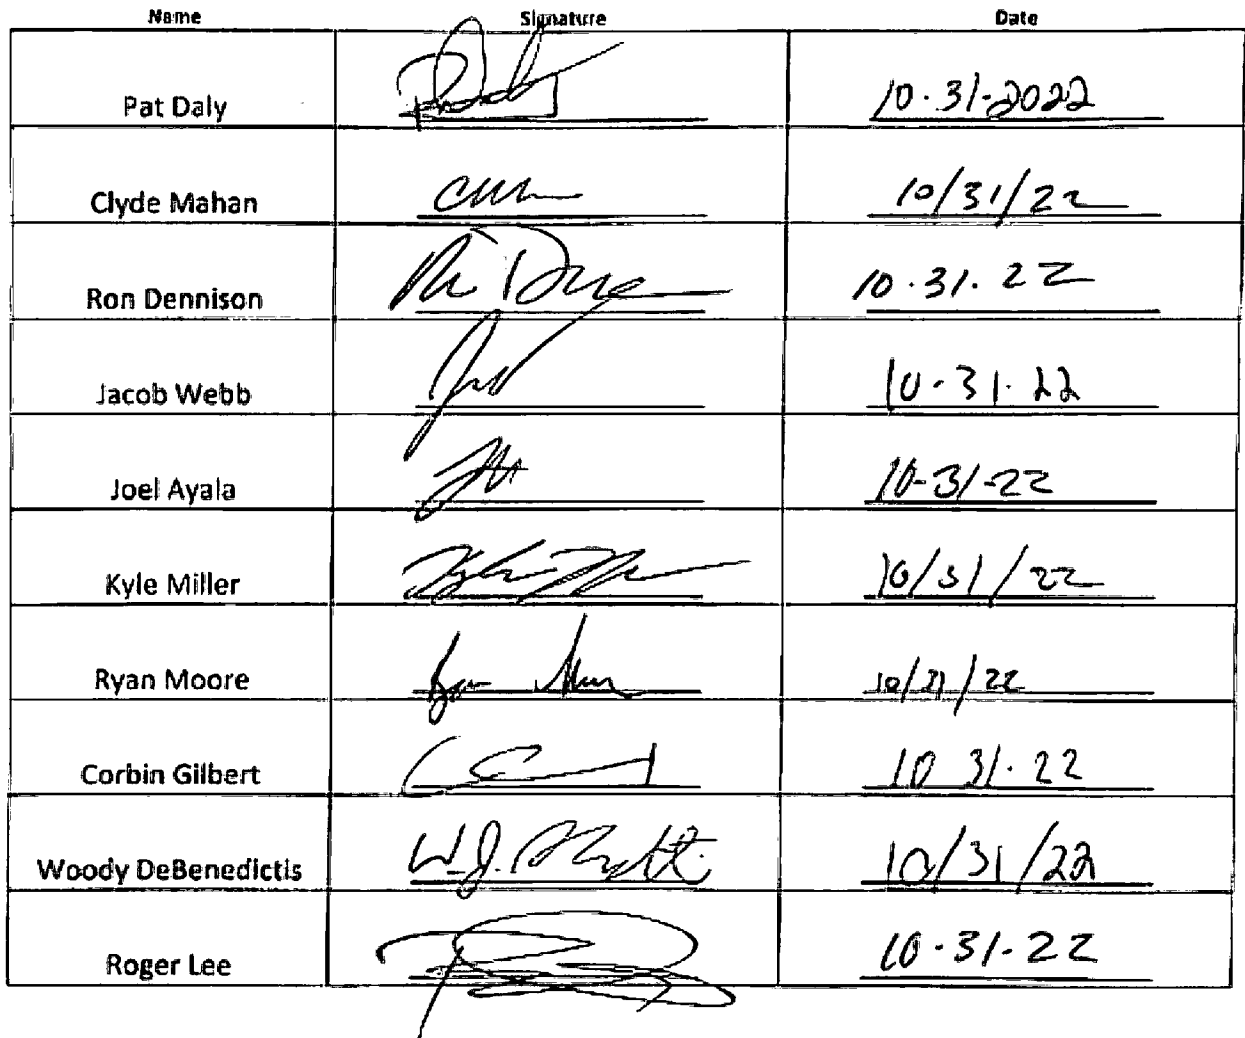 Name Signature Date
Pat Daly 10·31-2022
Clyde Mahan 10/31/22
Ron Dennison 10·31·22
Jacob Webb 10-31·22
Joel Ayala 10-31-22
Kyle Miller 10/31/22
Ryan Moore 10/31/22
Corbin Gilbert 10 31·22
Woody DeBenedictis 10/31/22
Roger Lee 10-31-22